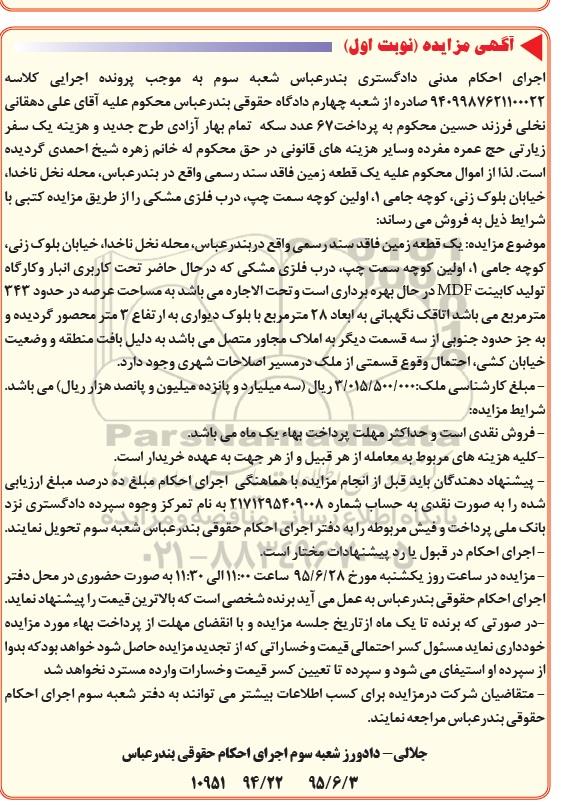 آگهی مزایده (نوبت اول)
اجرای احکام مدنی دادگستری بندرعباس شعبه سوم به موجب پرونده اجرایی کلاسه
۹۴۰۹۹۸۷۶۲۱۱۰۰۰۲۲ صادره از شعبه چهارم دادگاه حقوقی بندرعباس محکوم علیه آقای علی دهقانی
نخلی فرزند حسین محکوم به پرداخت۶۷ عدد سکه تمام بهار آزادی طرح جدید و هزینه یک سفر
زیارتی حج عمره مفرده وسایر هزینه های قانونی در حق محکوم له خانم زهره شیخ احمدی گردیده
است. لذا از اموال محکوم علیه یک قطعه زمین فاقد سند رسمی واقع در بندرعباس، محله نخل ناخدا،
خیابان بلوک زنی، کوچه جامی ۱، اولین کوچه سمت چپ، درب فلزی مشکی را از طریق مزایده کتبی با
شرایط ذیل به فروش می رساند:
موضوع مزایده: یک قطعه زمین فاقد سند رسمی واقع دربندرعباس، محله نخل ناخدا، خیابان بلوک زنی،
کوچه جامی ۱، اولین کوچه سمت چپ، درب فلزی مشکی که درحال حاضر تحت کاربری انبار وکارگاه
تولید کابینت MDF در حال بهره برداری است و تحت الاجاره می باشد به مساحت عرصه در حدود ۳۴۳
مترمربع می باشد اتاقک نگهبانی به ابعاد ۲۸ مترمربع با بلوک دیواری به ارتفاع ۳ متر محصور گردیده و
به جز حدود جنوبی از سه قسمت دیگر به املاک مجاور متصل می باشد به دلیل بافت منطقه و وضعیت
خیابان کشی، احتمال وقوع قسمتی از ملک درمسیر اصلاحات شهری وجود دارد.
- مبلغ کارشناسی ملک:۳/۰۱۵/۵۰۰/۰۰۰ ریال (سه میلیارد و پانزده میلیون و پانصد هزار ریال) می باشد.
شرایط مزایده:
- فروش نقدی است و حداکثر مهلت پرداخت بهاء یک ماه می باشد.
-کلیه هزینه های مربوط به معامله از هر قبیل و از هر جهت به عهده خریدار است.
- پیشنهاد دهندگان باید قبل از انجام مزایده با هماهنگی اجرای احکام مبلغ ده درصد مبلغ ارزیابی
شده را به صورت نقدی به حساب شماره ۲۱۷۱۲۹۵۴۰۹۰۰۸ به نام تمرکز وجوه سپرده دادگستری نزد
بانک ملی پرداخت و فیش مربوطه را به دفتر اجرای احکام حقوقی بندرعباس شعبه سوم تحویل نمایند.
- اجرای احکام در قبول یا رد پیشنهادات مختار است.
- مزایده در ساعت روز یکشنبه مورخ ۹۵/۶/۲۸ ساعت ۱۱:۰۰ الی ۱۱:۳۰ به صورت حضوری در محل دفتر
اجرای احکام حقوقی بندرعباس به عمل می آید برنده شخصی است که بالاترین قیمت را پیشنهاد نماید.
-در صورتی که برنده تا یک ماه ازتاریخ جلسه مزایده و با انقضای مهلت از پرداخت بهاء مورد مزایده
خودداری نماید مسئول کسر احتمالی قیمت وخساراتی که از تجدید مزایده حاصل شود خواهد بودکه بدوا
از سپرده او استیفای می شود و سپرده تا تعیین کسر قیمت وخسارات وارده مسترد نخواهد شد
- متقاضیان شرکت درمزایده برای کسب اطلاعات بیشتر می توانند به دفتر شعبه سوم اجرای احکام
حقوقی بندرعباس مراجعه نمایند.
جلالی- دادورز شعبه سوم اجرای احکام حقوقی بندرعباس
۹۵/۶/۳ ۹۴/۲۲ ۱۰۹۵۱
ParsNamadData
پایگاه اطلاع رسانی مناقصه و مزایده
۰۲۱-۸۸۳۴۹۶۷۰-۵